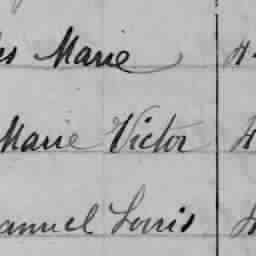 es Marie
Marie Victor
anuel Louis